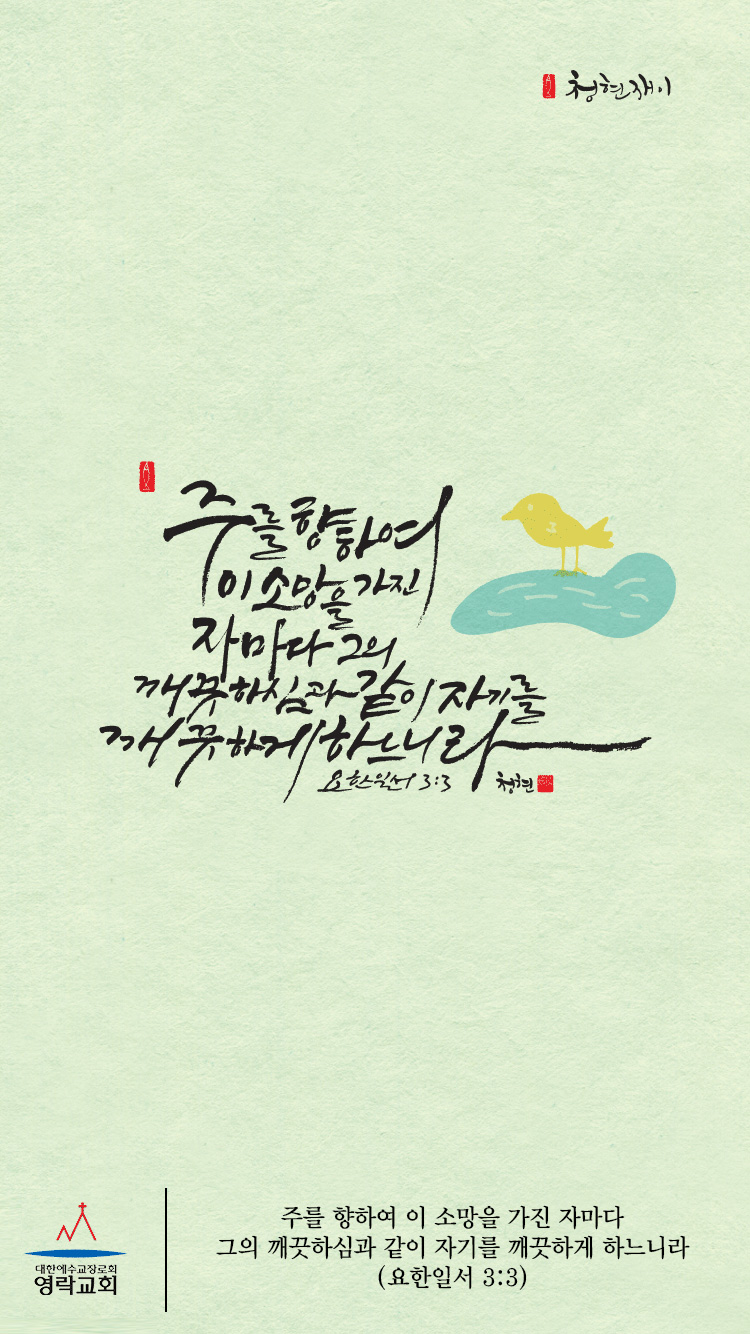 청현재이
주를 향하여
이 소망을 가진
자마다 그의
깨끗하심과 같이 자기를
깨끗하게 하느니라
요한일서 3:3
청현
대한예수교장로회
영락교회
주를 향하여 이 소망을 가진 자마다
그의 깨끗하심과 같이 자기를 깨끗하게 하느니라
(요한일서 3:3)